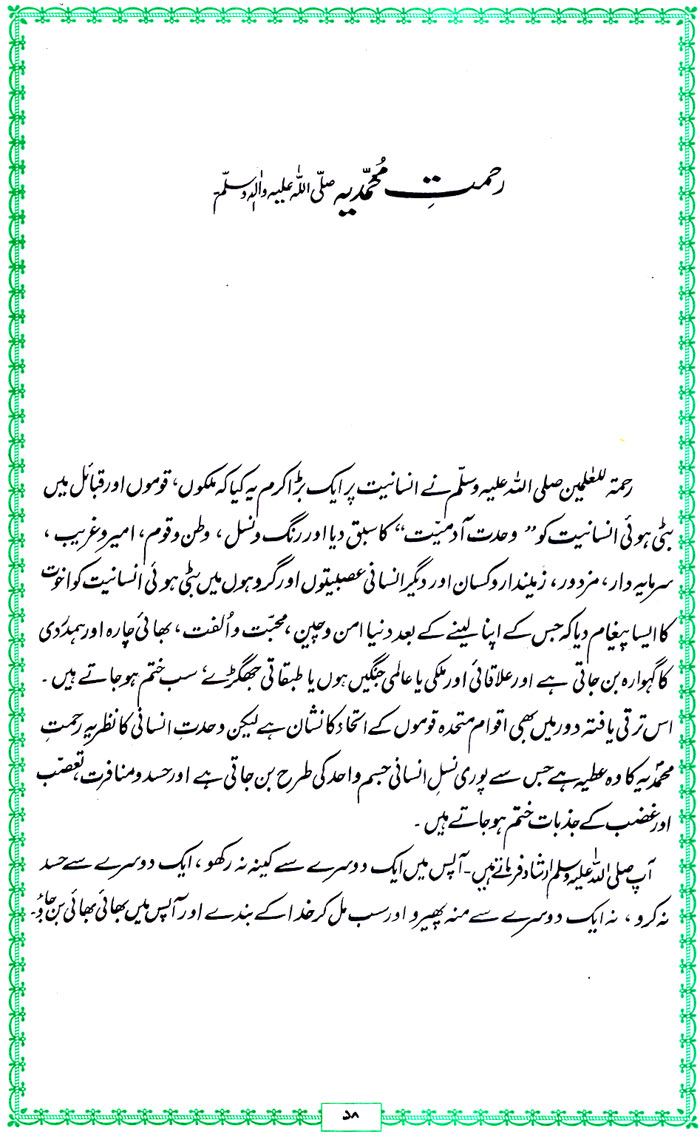 رحمتِ محمّدیہ صلّی اللہ علیہ واٰلہٖ وسلّم۔
رحمۃ للعٰلمین صلی اللہ علیہ وسلّم نے انسانیت پر ایک بڑا کرم یہ کیا کہ ملکوں، قوموں اور قبائل میں
بٹی ہوئی انسانیت کو ”وحدت آدمیّت“ کا سبق دیا اور رنگ و نسل، وطن و قوم، امیر و غریب،
سرمایہ دار، مزدور، زمیندار و کسان اور دیگر انسانی عصبیتوں اور گروہوں میں بٹی ہوئی انسانیت کو اخوّت
کا ایسا پیغام دیا کہ جس کے اپنا لینے کے بعد دنیا امن و چین، محبّت و اُلفت، بھائی چارہ اور ہمدردی
کا گہوارہ بن جاتی ہے اور علاقائی اور ملکی یا عالمی جنگیں ہوں یا طبقاتی جھگڑے، سب ختم ہو جاتے ہیں۔
اس ترقی یافتہ دور میں بھی اقوام متحدہ قوموں کے اتحاد کا نشان ہے لیکن وحدتِ انسانی کا نظریہ رحمتِ
محمّدیہ کا وہ عطیہ ہے جس سے پوری نسلِ انسانی جسم واحد کی طرح بن جاتی ہے اور حسد و منافرت، تعصّب
اور غضب کے جذبات ختم ہو جاتے ہیں۔
آپ صلی اللہ علیہ وسلم ارشاد فرماتے ہیں۔ آپس میں ایک دوسرے سے کینہ نہ رکھو، ایک دوسرے سے حسد
نہ کرو، نہ ایک دوسرے سے منہ پھیرو اور سب مل کر خدا کے بندے اور آپس میں بھائی بھائی بن جاؤ۔
۵۸